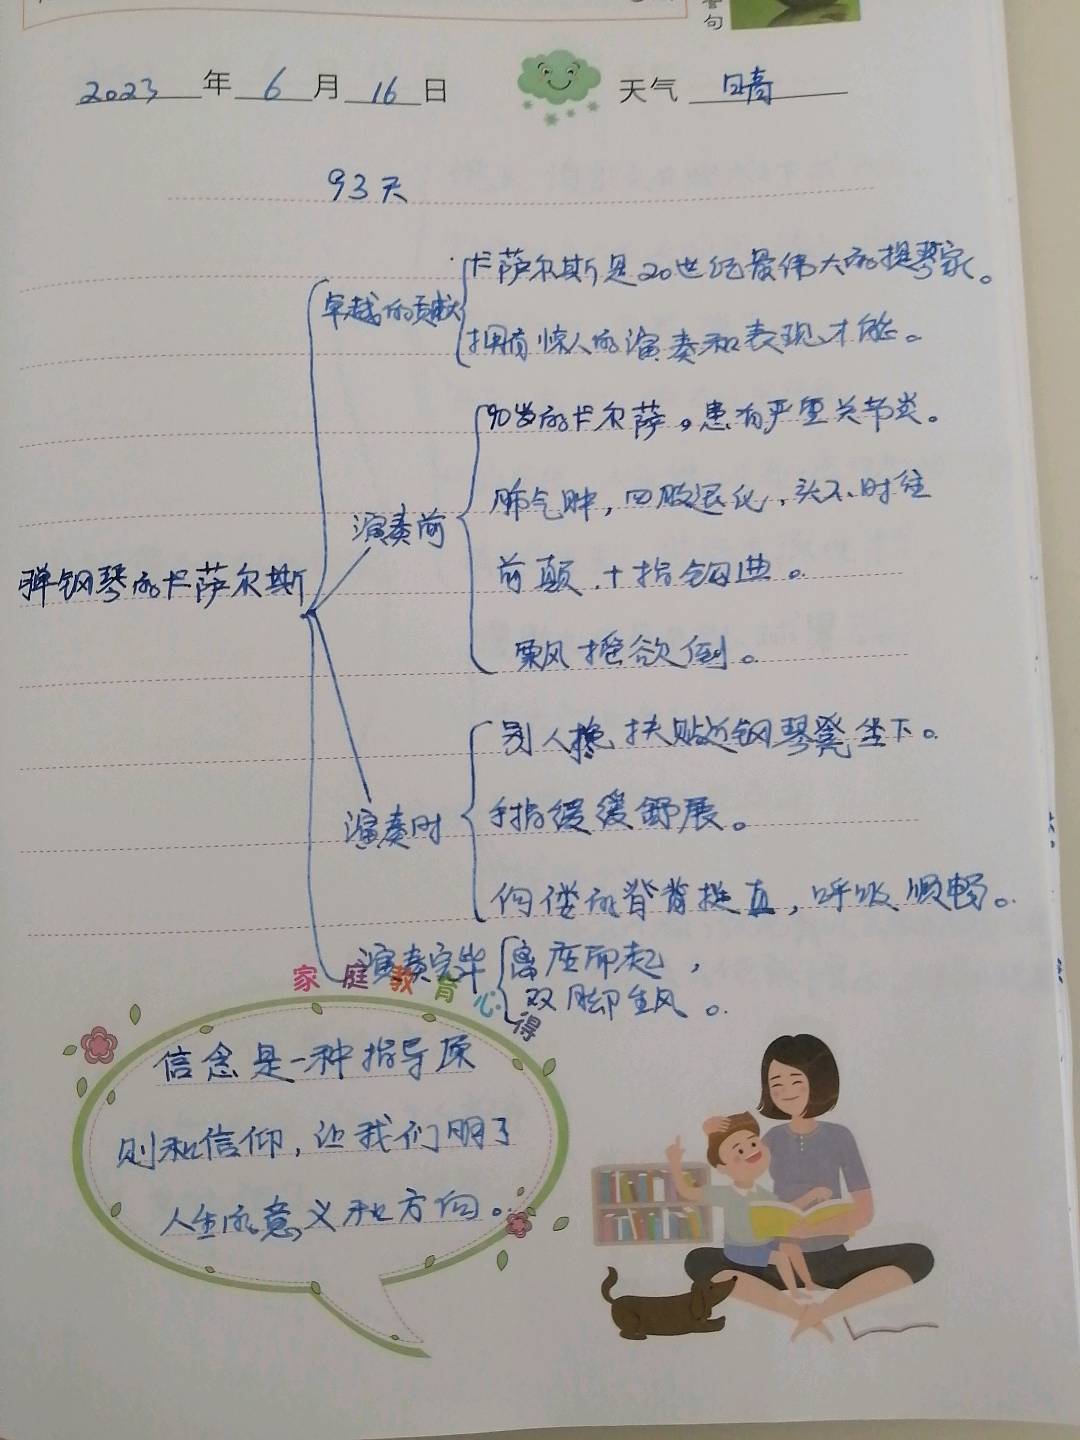 2023年6月16日 天气 晴
93天
卡萨尔斯是20世纪最伟大的提琴家。
卓越的贡献
拥有惊人的演奏和表现才能。
90岁的卡尔萨。患有严重关节炎。
肺气肿,四肢退化,头不时往
演奏前
前颠,十指钩曲。
弹钢琴的卡萨尔斯
飘摇欲倒。
别人搀扶贴近钢琴凳坐下。
演奏时
手指缓缓舒展。
佝偻的脊背挺直,呼吸顺畅。
演奏完毕
离座而起,
双脚生风。
家庭教育心得
信念是一种指导原
则和信仰,让我们明了
人生的意义和方向。